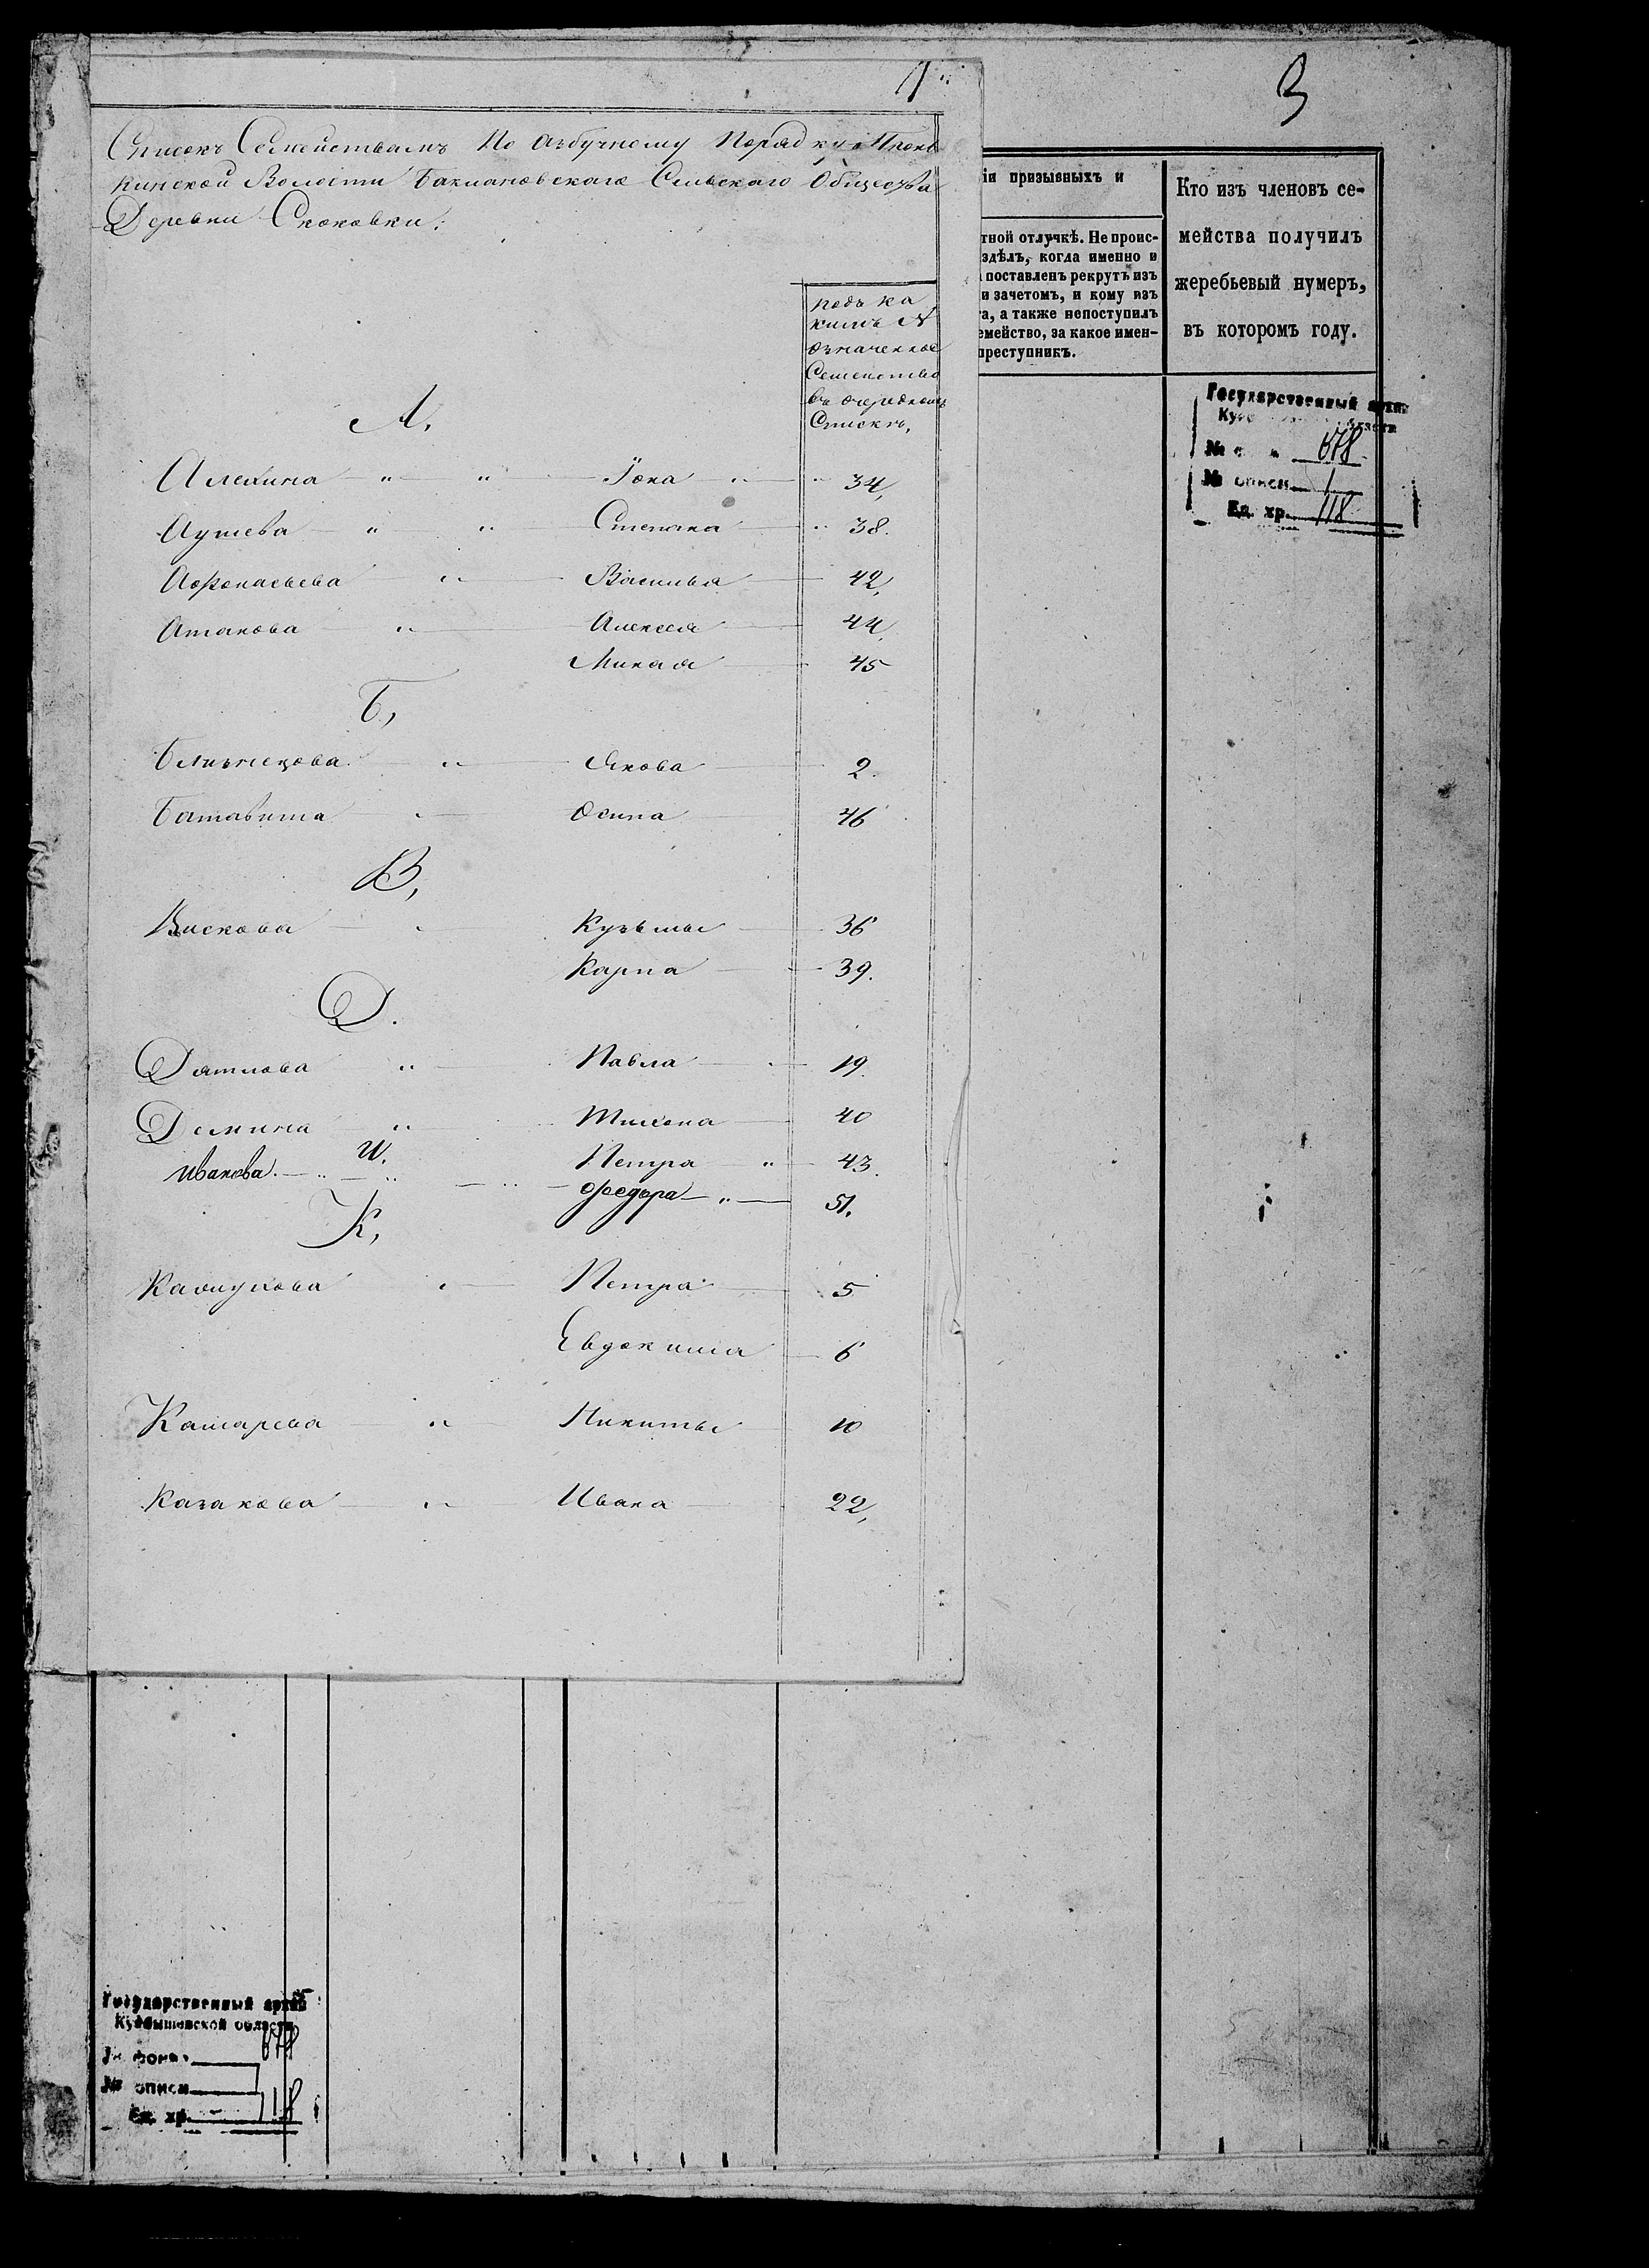 1
3
Списокъ Семействамъ По азбучному Порядку Проно
кинской Волости Бакмановскаго Сельскаго Общества
Деревни Скоковки.
подъ ка
кимъ №
означенное
Семейство
въ очередномъ
Спискѣ,
А,
Алехина Іона 34,
Аушева Степана 38.
Афонасьева Василья 42,
Атакова Алексея 44,
45
Б,
Близнецова Якова 2.
Осипа 46
В,
Вискова Кузьмы 36
Карпа 39.
Д.
Дятлова Павла 19.
Демина Тихона 40
И.
Иванова Петра 43.
Федора 51.
К,
Петра 5
Евдокима 6
Никиты 10
Казакова Ивана 22,
іи призывныхъ и
тной отлучкѣ. Не проис-
здѣлъ, когда именно и
поставленъ рекрутъ изъ
и зачетомъ, и кому изъ
та, а также непоступилъ
емейство, за какое имен-
преступникъ.
Кто изъ членовъ се-
мейства получилъ
жеребьевый нумеръ,
въ которомъ году.
Государственный архив
области
№ 678
№ описи 1
Ед. хр. 118
Государственный архив
Куйбышевской области
№ фонда 678
№ описи 1
Ед. хр. 118